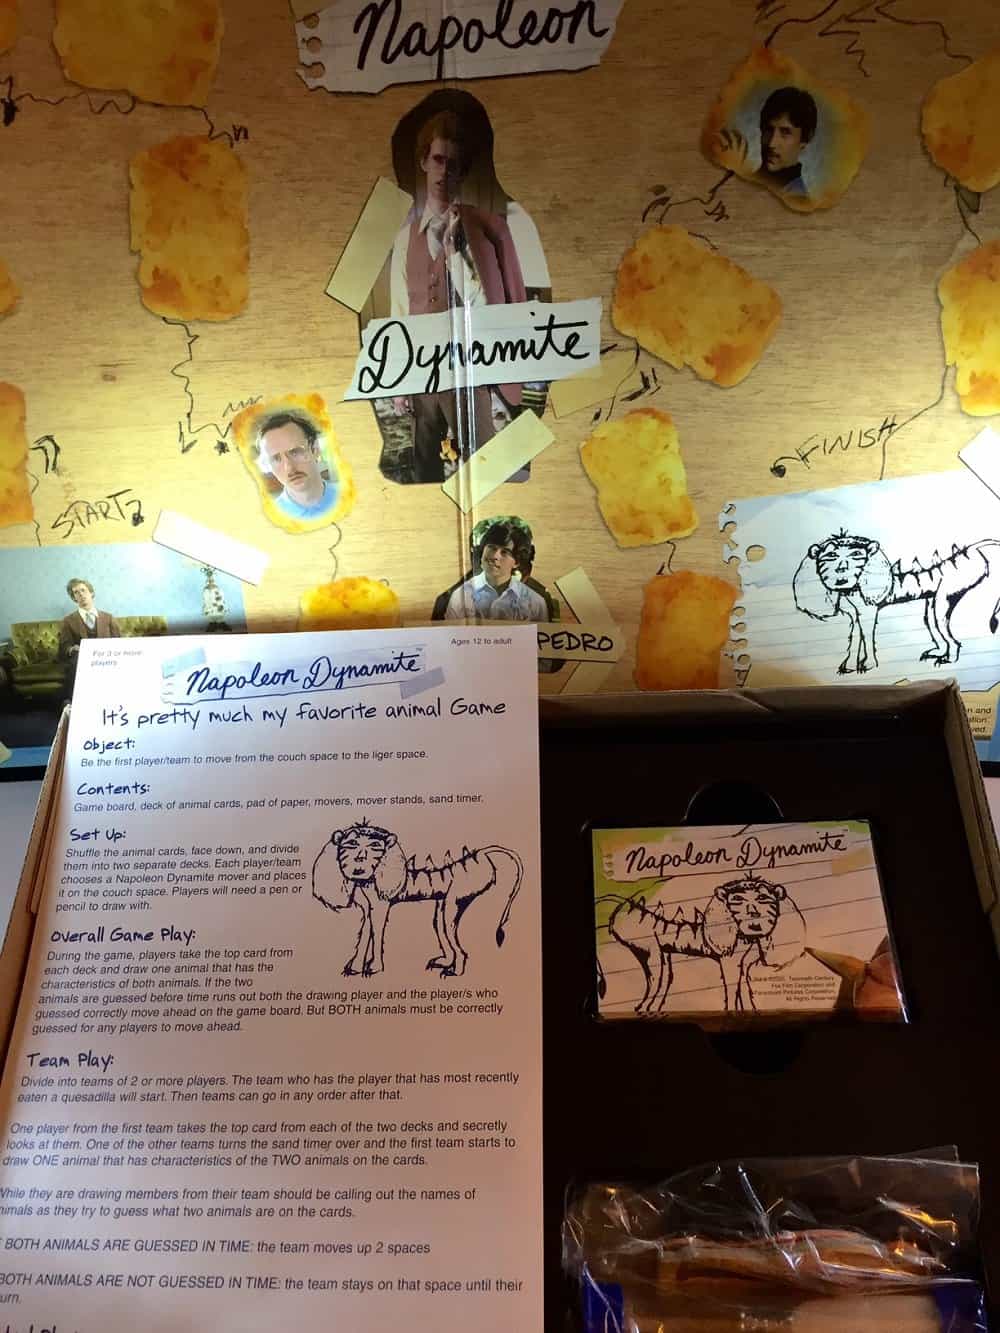 Napoleon
Dynamite
FINISH
START
PEDRO
n and
ation.
ved.
For 3 or more
players
Ages 12 to adult
Napoleon Dynamite™
It's pretty much my favorite animal Game
Object:
Be the first player/team to move from the couch space to the liger space.
Contents:
Game board, deck of animal cards, pad of paper, movers, mover stands, sand timer.
Set Up:
Shuffle the animal cards, face down, and divide
them into two separate decks. Each player/team
chooses a Napoleon Dynamite mover and places
it on the couch space. Players will need a pen or
pencil to draw with.
Overall Game Play:
During the game, players take the top card from
each deck and draw one animal that has the
characteristics of both animals. If the two
animals are guessed before time runs out both the drawing player and the player/s who
guessed correctly move ahead on the game board. But BOTH animals must be correctly
guessed for any players to move ahead.
Team Play:
Divide into teams of 2 or more players. The team who has the player that has most recently
eaten a quesadilla will start. Then teams can go in any order after that.
One player from the first team takes the top card from each of the two decks and secretly
looks at them. One of the other teams turns the sand timer over and the first team starts to
draw ONE animal that has characteristics of the TWO animals on the cards.
While they are drawing members from their team should be calling out the names of
nimals as they try to guess what two animals are on the cards.
BOTH ANIMALS ARE GUESSED IN TIME: the team moves up 2 spaces
BOTH ANIMALS ARE NOT GUESSED IN TIME: the team stays on that space until their
urn.
Napoleon Dynamite™
Twentieth Century
Fox Film Corporation and
Paramount Pictures Corporation.
All Rights Reserved